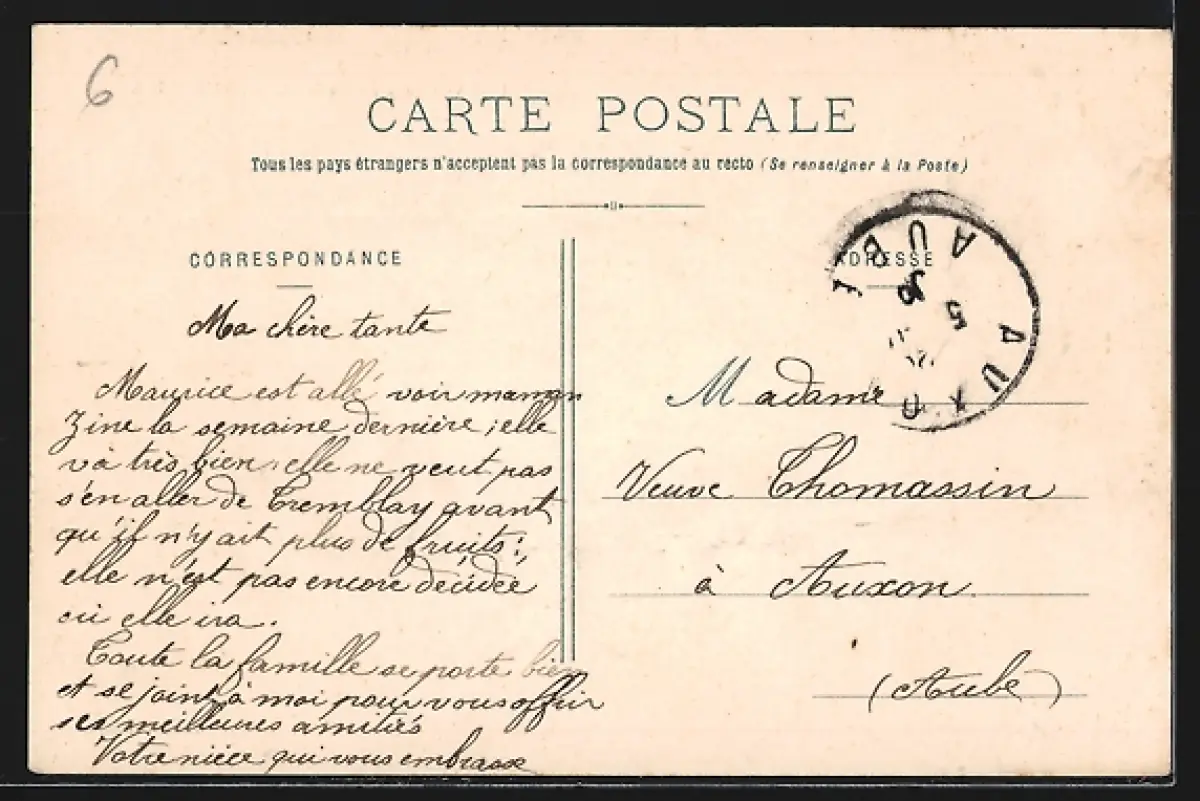 6
CARTE POSTALE
Tous les pays étrangers n'acceptent pas la correspondance au recto (Se renseigner à la Poste)
CORRESPONDANCE
Ma chère tante
Maurice est allé voir maman
Zine la semaine dernière ; elle
va très bien, elle ne veut pas
s'en aller de Tremblay avant
qu'il n'y ait plus de fruits ;
elle n'est pas encore décidée
où elle ira.
Toute la famille se porte bien
et se joint à moi pour vous offrir
ses meilleures amitiés
Votre nièce qui vous embrasse
ADRESSE
AUXON
AUBE
5
Madame
Veuve Thomassin
à Auxon
(Aube)